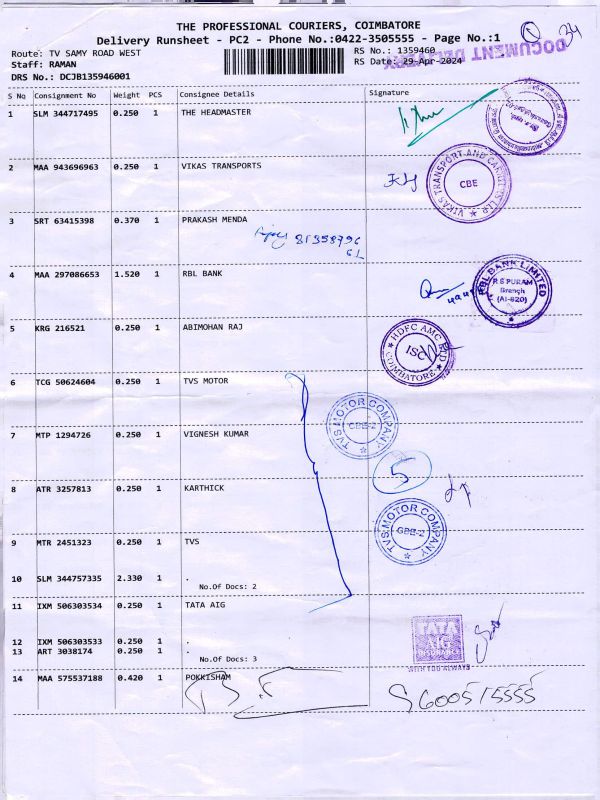 THE PROFESSIONAL COURIERS, COIMBATORE
Delivery Runsheet - PC2 - Phone No.:0422-3505555 - Page No.:1
Route: TV SAMY ROAD WEST
RS No.: 1359460
Staff: RAMAN
RS Date: 29-Apr-2024
DOCUMENT DELIVERY
DRS No.: DCJB135946001
S No Consignment No Weight PCS Consignee Details Signature
1 SLM 344717495 0.250 1 THE HEADMASTER
2 MAA 943696963 0.250 1 VIKAS TRANSPORTS
VIKAS TRANSPORT AND
CBE
3 SRT 63415398 0.370 1 PRAKASH MENDA
4 MAA 297086653 1.520 1 RBL BANK
RBL BANK LIMITED
R S PURAM
Branch
(AI-820)
5 KRG 216521 0.250 1 ABIMOHAN RAJ
HDFC AMC LTD
ISC
COIMBATORE
6 TCG 50624604 0.250 1 TVS MOTOR
TVS MOTOR COMPANY
CBE-2
7 MTP 1294726 0.250 1 VIGNESH KUMAR
5
8 ATR 3257813 0.250 1 KARTHICK
TVS MOTOR COMPANY
CBE-2
9 MTR 2451323 0.250 1 TVS
10 SLM 344757335 2.330 1 .
No.Of Docs: 2
11 IXM 506303534 0.250 1 TATA AIG
TATA
AIG
INSURANCE
WITH YOU ALWAYS
12 IXM 506303533 0.250 1 .
13 ART 3038174 0.250 1 .
No.Of Docs: 3
14 MAA 575537188 0.420 1 POKKISHAM
9600515555